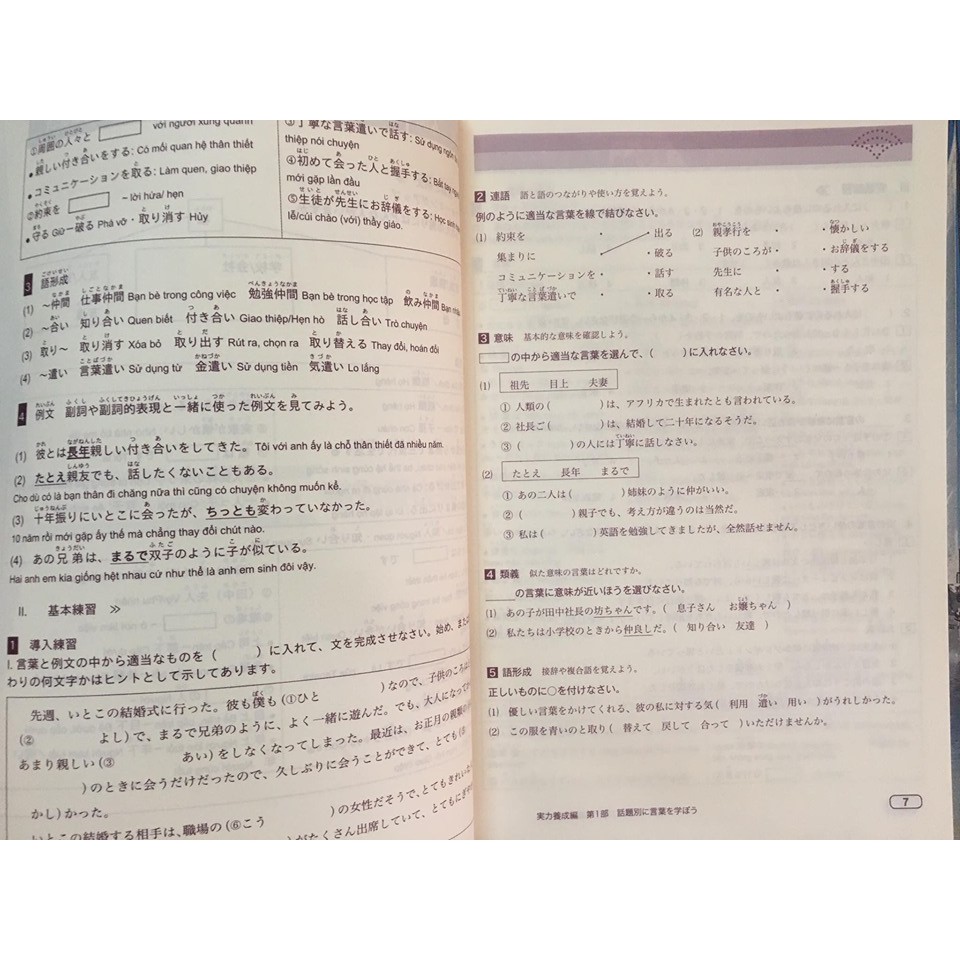 ①周囲の人々と với người xung quanh
●親しい付き合いをする: Có mối quan hệ thân thiết
●コミュニケーションを取る: Làm quen, giao thiệp
②約束を – lời hứa/ hẹn
●守る Giữ – 破る Phá vỡ・取り消す Hủy
③丁寧な言葉遣いで話す: Sử dụng
thiệp nói chuyện
④初めて会った人と握手する: Bắt tay
mới gặp lần đầu
⑤生徒が先生にお辞儀をする: Học sinh
lễ/cúi chào (với) thầy giáo.
3 語形成
(1) ～仲間 仕事仲間 Bạn bè trong công việc 勉強仲間 Bạn bè trong học tập 飲み仲間 Bạn
(2) ～合い 知り合い Quen biết 付き合い Giao thiệp/Hẹn hò 話し合い Trò chuyện
(3) 取り～ 取り消す Xóa bỏ 取り出す Rút ra, chọn ra 取り替える Thay đổi, hoán đổi
(4) ～遣い 言葉遣い Sử dụng từ 金遣い Sử dụng tiền 気遣い Lo lắng
4 例文 副詞や副詞的表現と一緒に使った例文を見てみよう。
(1) 彼とは長年親しい付き合いをしてきた。Tôi với anh ấy là chỗ thân thiết đã nhiều năm.
(2) たとえ親友でも、話したくないこともある。
Cho dù có là bạn thân đi chăng nữa thì cũng có chuyện không muốn kể.
(3) 十年振りにいとこに会ったが、ちっとも変わっていなかった。
10 năm rồi mới gặp ấy thế mà chẳng thay đổi chút nào.
(4) あの兄弟は、まるで双子のように子が似ている。
Hai anh em kia giống hệt nhau cứ như thể là anh em sinh đôi vậy.
II. 基本練習 ≫
1 導入練習
I. 言葉と例文の中から適当なものを ( ) に入れて、文を完成させなさい。始め、また
わりの何文字かはヒントとして示してあります。
先週、いとこの結婚式に行った。彼も僕も (①ひと )なので、子供のころは
(② よし)で、まるで兄弟のように、よく一緒に遊んだ。でも、大人になって
あまり親しい (③ あい)をしなくなってしまった。最近は、お正月の親類の
)のときに会うだけだったので、久しぶりに会うことができて、とても
かし)かった。
いとこの結婚する相手は、職場の (⑥こう )の女性だそうで、とてもきれい
)がたくさん出席していて、とても
2 連語 語と語のつながりや使い方を覚えよう。
例のように適当な言葉を線で結びなさい。
(1) 約束を ・ ・ 出る (2) 親孝行を ・ ・ 懐かしい
集まりに ・ ・ 破る 子供のころが ・ ・ お辞儀をする
コミュニケーションを ・ ・ 話す 先生に ・ ・ する
丁寧な言葉遣いで ・ ・ 取る 有名な人と ・ ・ 握手する
3 意味 基本的な意味を確認しよう。
の中から適当な言葉を選んで、( )に入れなさい。
(1) 祖先 目上 夫妻
① 人類の ( )は、アフリカで生まれたとも言われている。
② 社長ご ( )は、結婚して二十年になるそうだ。
③ ( )の人には丁寧に話しなさい。
(2) たとえ 長年 まるで
① あの二人は ( )姉妹のように仲がいい。
② ( )親子でも、考え方が違うのは当然だ。
③ 私は ( )英語を勉強してきましたが、全然話せません。
4 類義 似た意味の言葉はどれですか。
の言葉に意味が近いほうを選びなさい。
(1) あの子が田中社長の坊ちゃんです。( 息子さん お嬢ちゃん )
(2) 私たちは小学校のときから仲良しだ。( 知り合い 友達 )
5 語形成 接辞や複合語を覚えよう。
正しいものに○を付けなさい。
(1) 優しい言葉をかけてくれる、彼の私に対する気( 利用 遣い 用い )がうれしかった。
(2) この服を青いのと取り( 替えて 戻して 合って )いただけませんか。
実力養成編 第1部 話題別に言葉を学ぼう
7